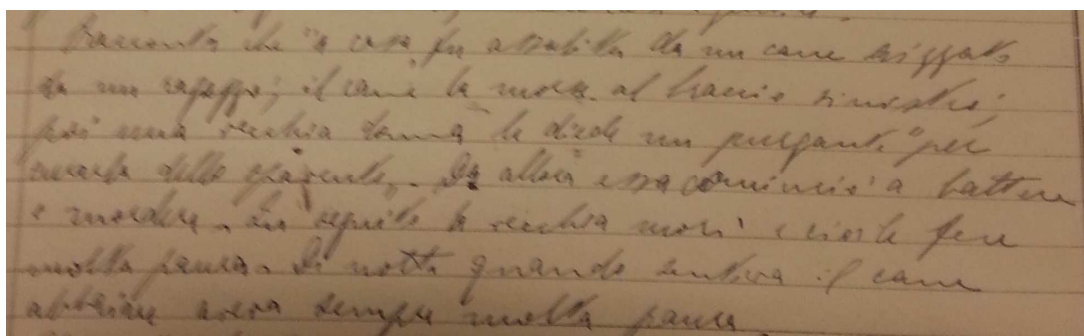 Racconta che "a casa fu assalita da un cane aizzato
da un ragazzo; il cane la morse al braccio sinistro;
poi una vecchia donna le diede un purgante" per
curarla dello spavento. Da allora essa cominciò a battere
e mordere. In seguito la vecchia morì e ciò le fece
molta paura. Di notte quando sentiva il cane
abbaiare aveva sempre molta paura